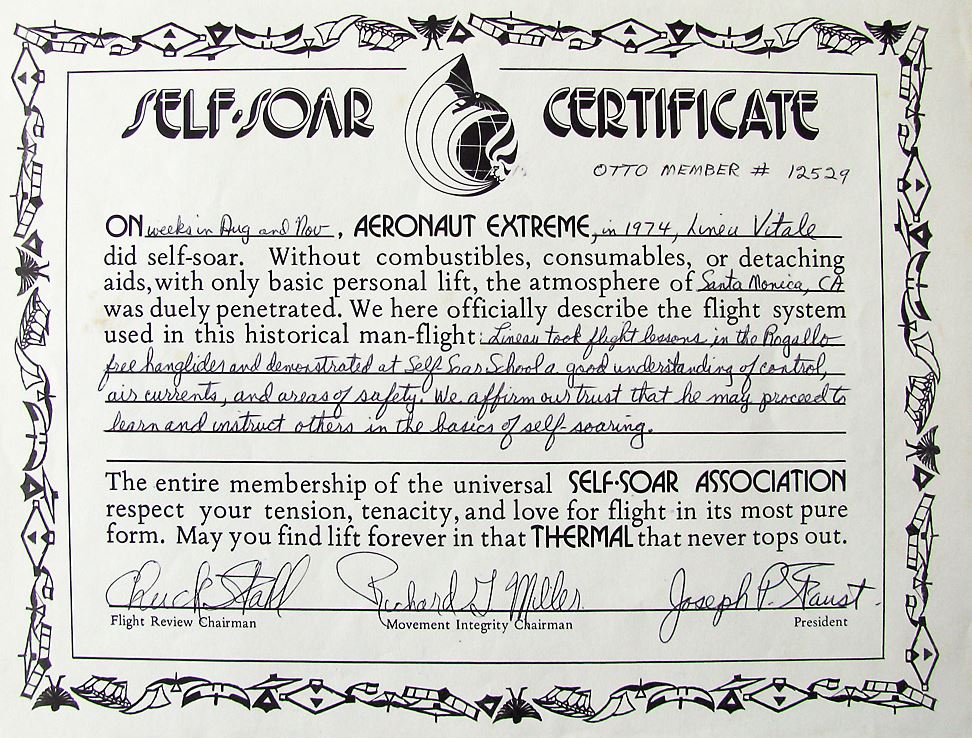 SELF·SOAR CERTIFICATE
OTTO MEMBER # 12529
ON weeks in Aug and Nov, AERONAUT EXTREME, in 1974, Lineu Vitale
did self-soar. Without combustibles, consumables, or detaching
aids, with only basic personal lift, the atmosphere of Santa Monica, CA
was duely penetrated. We here officially describe the flight system
used in this historical man-flight: Lineau took flight lessons in the Rogallo
free hanglider and demonstrated at Self-Soar School a good understanding of control,
air currents, and areas of safety. We affirm our trust that he may proceed to
learn and instruct others in the basics of self-soaring.
The entire membership of the universal SELF·SOAR ASSOCIATION
respect your tension, tenacity, and love for flight in its most pure
form. May you find lift forever in that THERMAL that never tops out.
Chuck Stahl Richard G Miller Joseph P. Faust
Flight Review Chairman Movement Integrity Chairman President